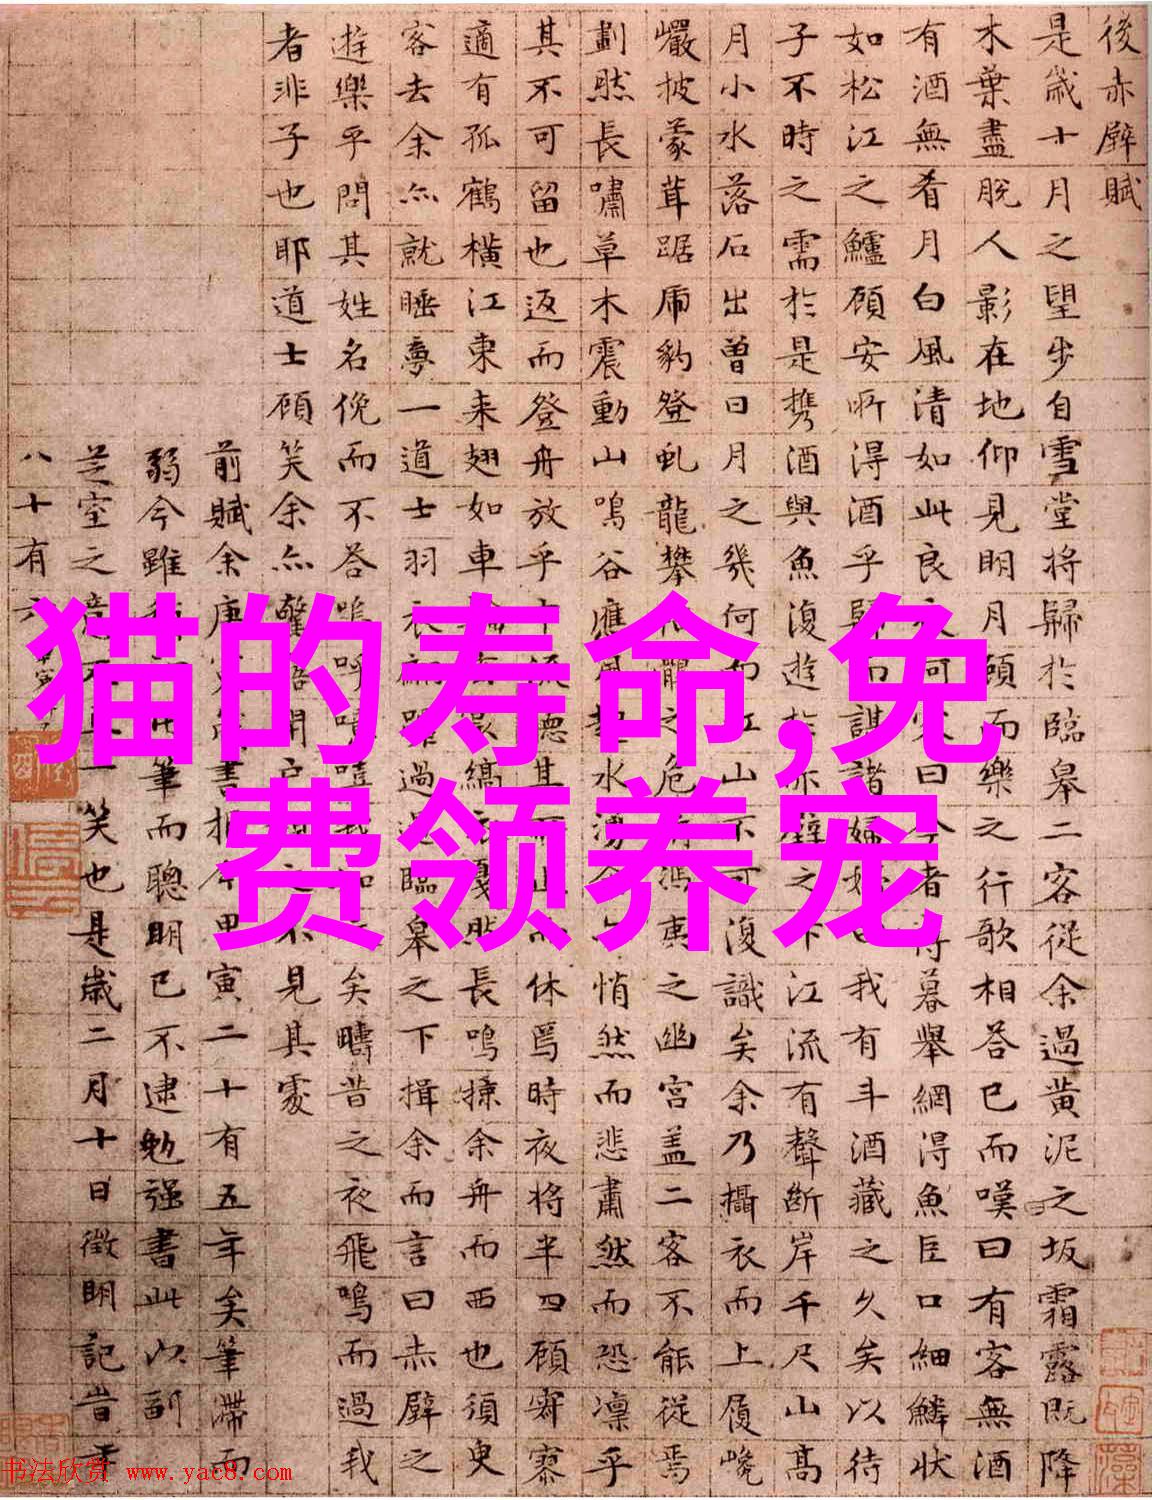 後赤壁賦
是歲十月之望步自雪堂將歸於臨皋二客從余過黄泥之坂霜露既降
木葉盡脱人影在地仰見明月顧而樂之行歌相答已而嘆曰有客無酒
有酒無肴月白風清如此良何曰今者暮舉網得魚巨口細鱗状
如松江之鱸顧安所得酒乎歸而謀諸婦我有斗酒藏之久矣以待
子不時之需於是携酒與魚復遊於赤壁之下江流有聲断岸千尺山高
月小水落石出曾日月之幾何而江山不可復識矣余乃攝衣而上履巉
巖披蒙茸踞虎豹登虬龍攀鶻之危馮夷之幽宮盖二客不能從焉
劃然長嘯草木震動山鳴谷應風起水湧余悄然而悲肅然而恐凛乎
其不可留也返而登舟放乎中流聽其所止而休焉時夜将半四顧寂寥
適有孤鶴横江東来翅如車輪裳縞衣戛然長鳴掠余舟而西也須臾
客去余亦就睡夢一道士羽衣過臨皋之下揖余而言曰赤壁之
遊樂乎問其姓名俛而不答嗚呼噫嘻我知矣疇昔之夜飛鳴而過我
者非子也耶道士顧笑余亦驚悟開户不見其處
前賦余庚書甲寅二十有五年矣筆滯而
弱今雖筆而聰明已不逮勉强書此以副
芝室之意一笑也是歲二月十日徵明記昔年
八十有六
猫的寿命,免
费领养宠
书法欣赏 www.yac8.com